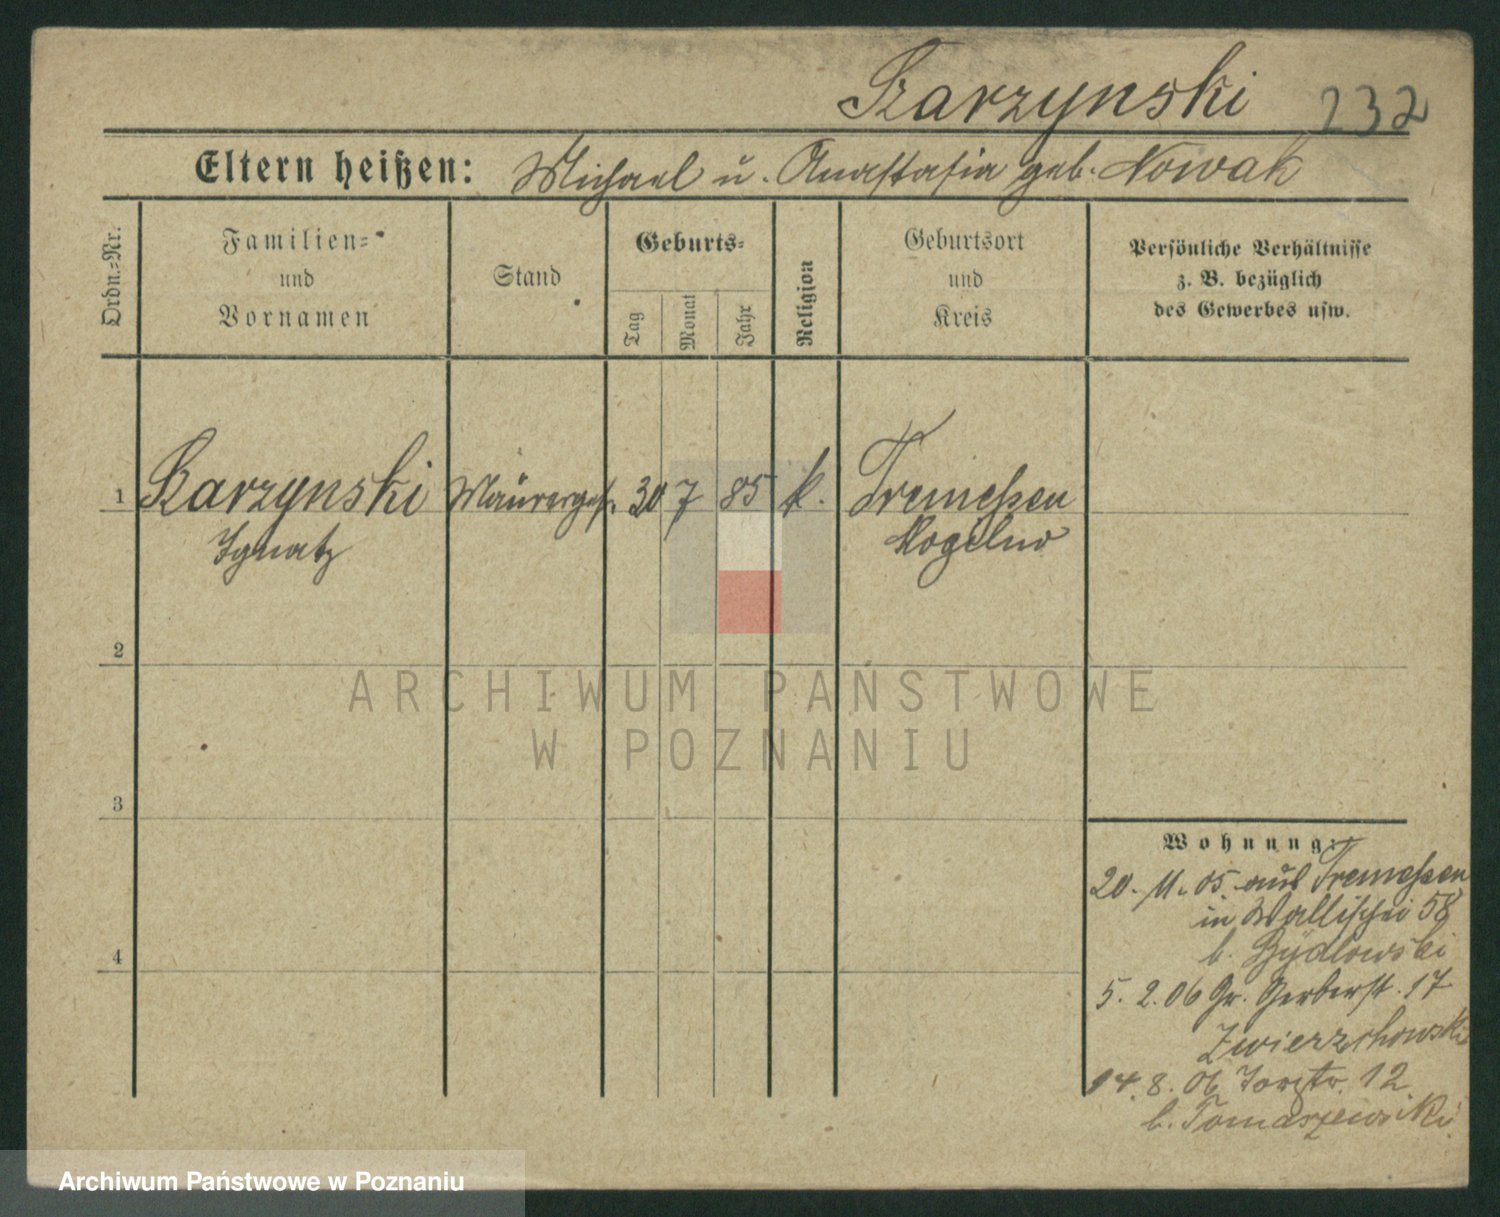 Szarzynski 232
Eltern heißen: Michael u. Anastasia geb. Nowak
Ordn.-Nr.
Familien-
und
Vornamen
Stand
Geburts-
Tag
Monat
Jahr
Religion
Geburtsort
und
Kreis
Persönliche Verhältnisse
z. B. bezüglich
des Gewerbes usw.
1 Szarzynski Maurerges. 30 7 85 k. Tremessen
Ignatz Mogilno
2
ARCHIWUM PAŃSTWOWE
W POZNANIU
3
4
Wohnung:
20. 11. 05. aus Tremessen
in Wallischei 58
b. Bydlowski
5. 2. 06 Gr. Gerberst. 17
Zwierzchowski
14. 8. 06 12
b. Tomaszewski
Archiwum Państwowe w Poznaniu